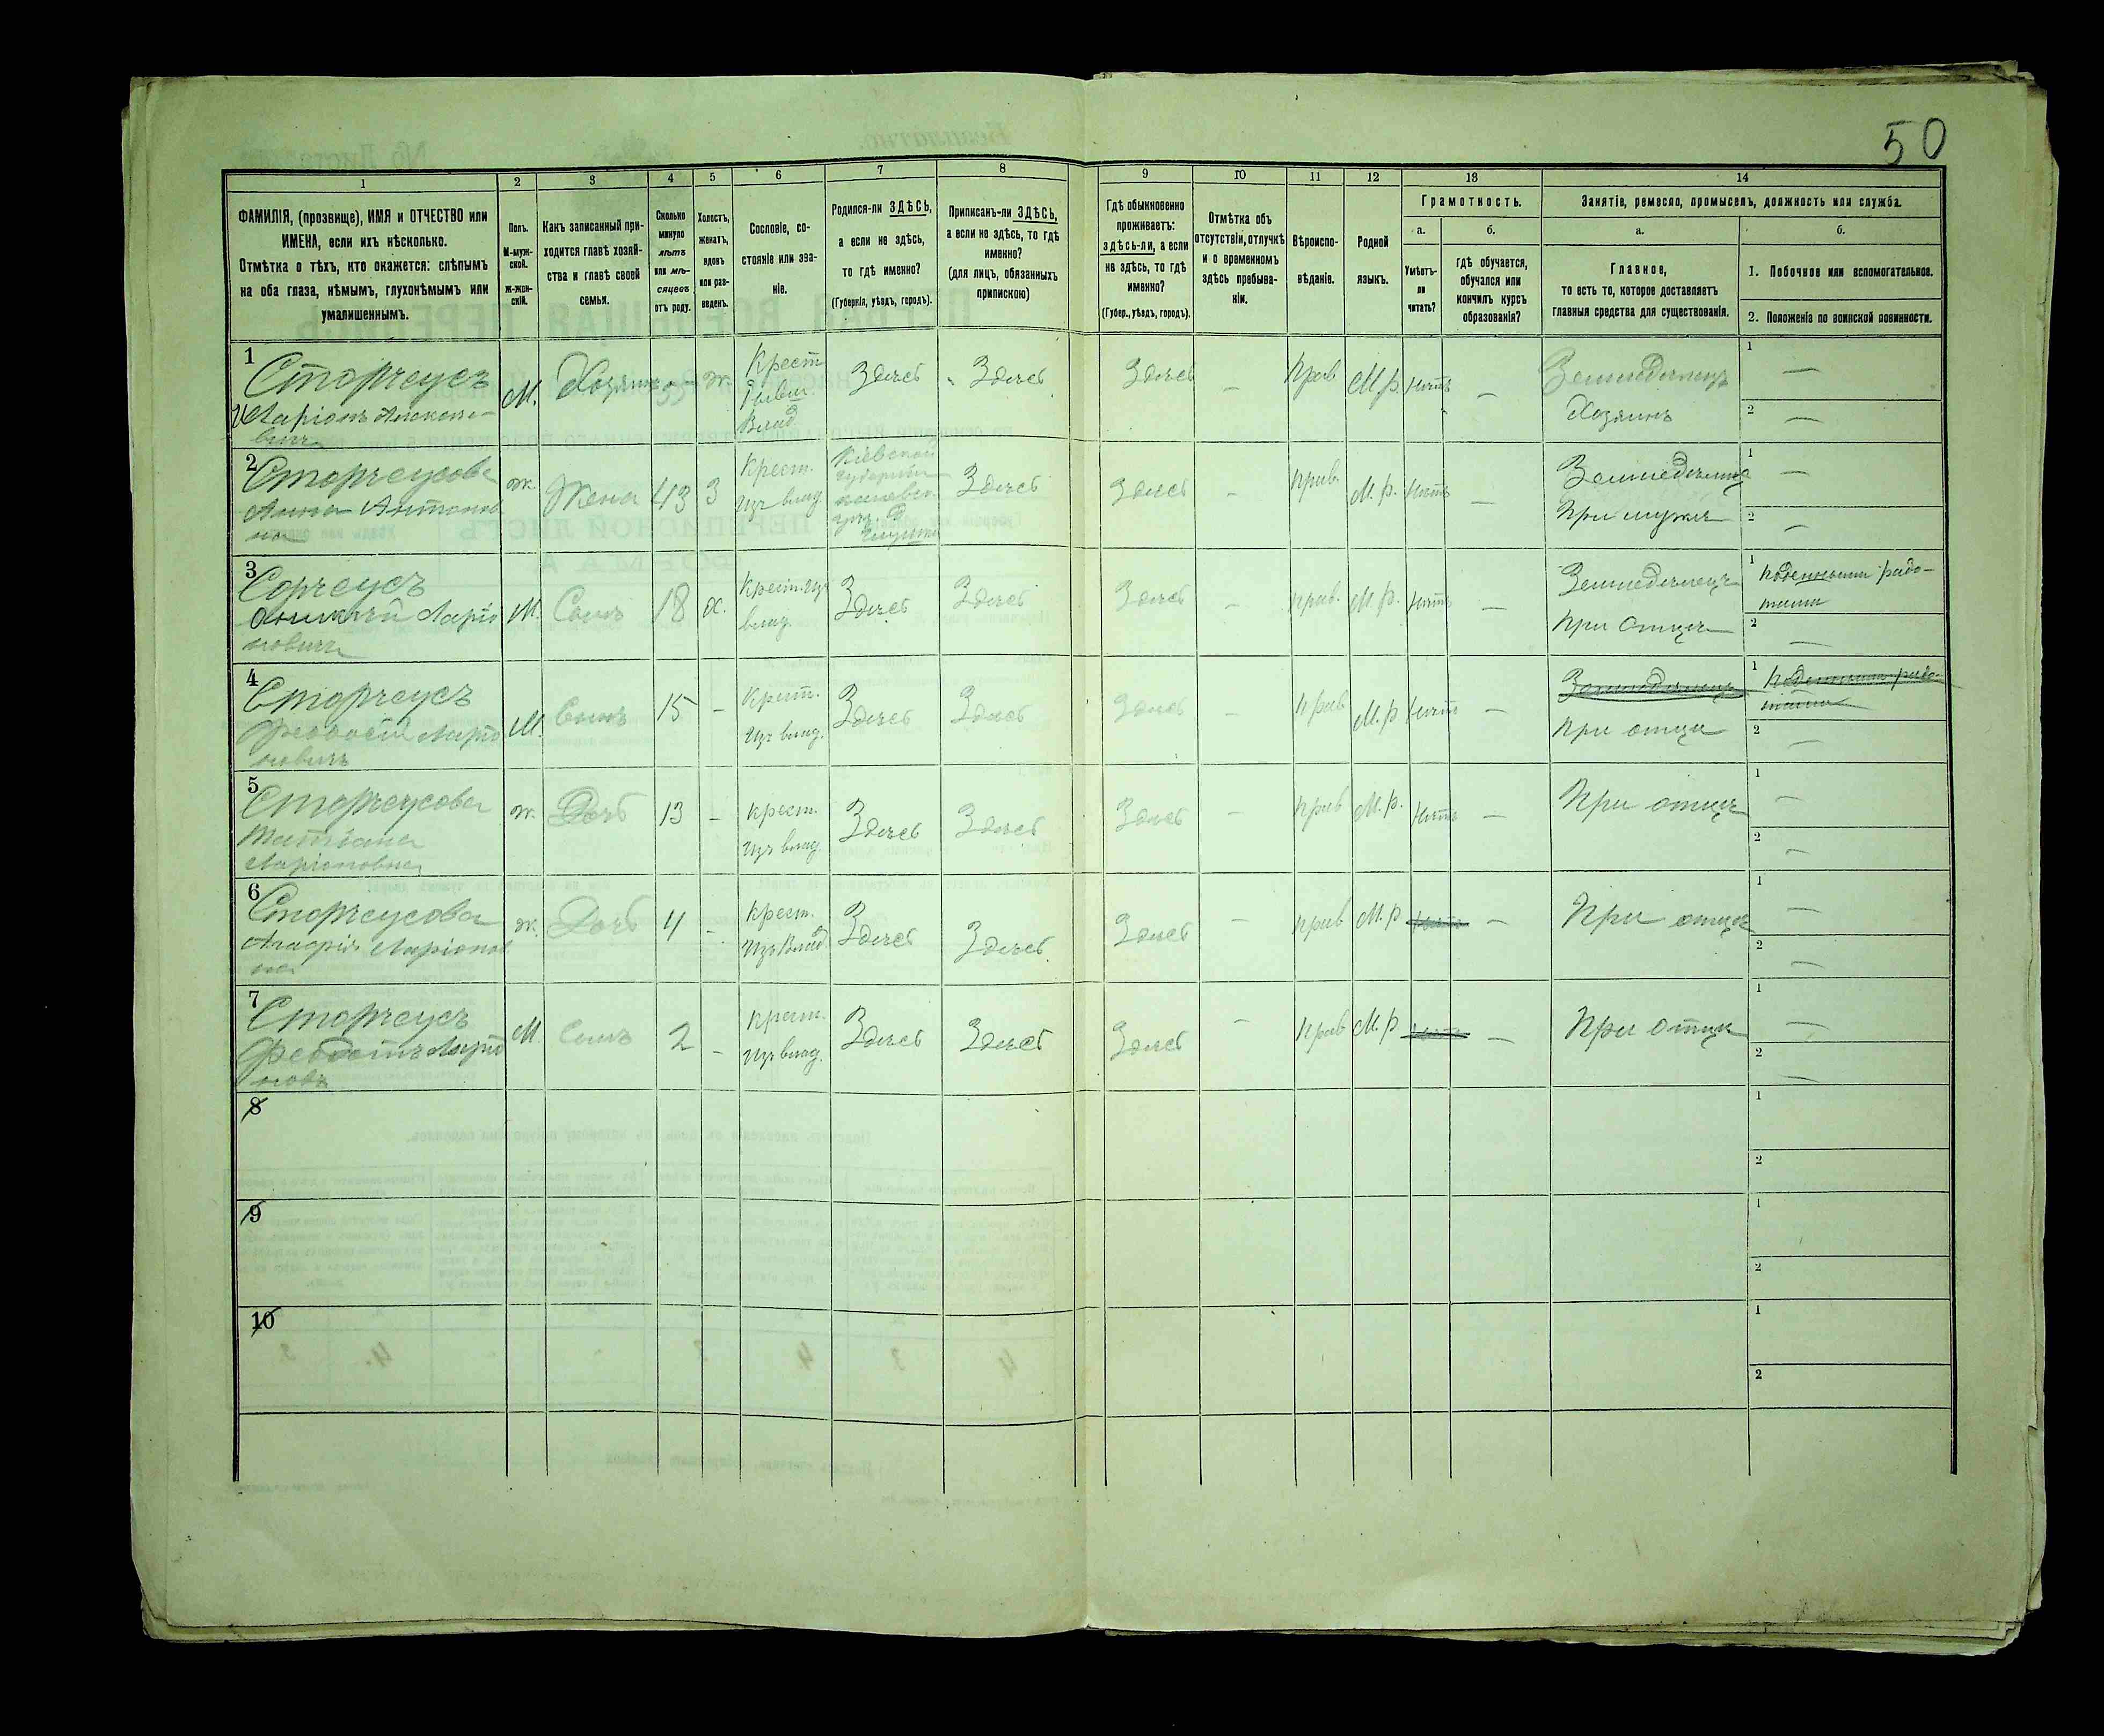 50
1
2
3
4
5
6
7
8
9
10
11
12
13
14
ФАМИЛІЯ, (прозвище), ИМЯ и ОТЧЕСТВО или
ИМЕНА, если ихъ нѣсколько.
Отмѣтка о тѣхъ, кто окажется: слѣпымъ
на оба глаза, нѣмымъ, глухонѣмымъ или
умалишеннымъ.
Полъ.
М-муж-
ской.
Ж-жен-
скій.
Какъ записанный при-
ходится главѣ хозяй-
ства и главѣ своей
семьи.
Сколько
минуло
лѣтъ
или мѣ-
сяцевъ
отъ роду.
Холостъ,
женатъ,
вдовъ
или раз-
веденъ.
Сословіе, со-
стояніе или зва-
ніе.
Родился-ли ЗДѢСЬ,
а если не здѣсь,
то гдѣ именно?
(Губернія, уѣздъ, городъ).
Приписанъ-ли ЗДѢСЬ,
а если не здѣсь, то гдѣ
именно?
(для лицъ, обязанныхъ
припискою)
Гдѣ обыкновенно
проживаетъ:
здѣсь-ли, а если
не здѣсь, то гдѣ
именно?
(Губер., уѣздъ, городъ).
Отмѣтка объ
отсутствіи, отлучкѣ
и о временномъ
здѣсь пребыва-
ніи.
Вѣроиспо-
вѣданіе.
Родной
языкъ.
Грамотность.
а.
Умѣетъ-
ли
читать?
б.
гдѣ обучается,
обучался или
кончилъ курсъ
образованія?
Занятіе, ремесло, промыселъ, должность или служба.
а.
Главное,
то есть то, которое доставляетъ
главныя средства для существованія.
б.
1. Побочное или вспомогательное.
2. Положеніе по воинской повинности.
1
Сторчеусъ
Ларіонъ
М.
Хозяинъ
55
ж.
Крест
Влад
Здѣсь
Здѣсь
Здѣсь
—
Прав
М.р.
Нѣтъ
—
Земледѣлецъ
Хозяинъ
1 —
2 —
2
Сторчеусова
Анна Антонов
на
ж.
Жена
43
З
Крест.
изъ влад.
Кіевской
губерніи
Здѣсь
Здѣсь
—
прав.
М.р.
Нѣтъ
—
Земледѣлица
При мужѣ
1 —
2 —
3
Сорчеусъ
Ларіо
новичъ
М.
Сынъ
18
х.
Крест. изъ
влад.
Здѣсь
Здѣсь
Здѣсь
—
прав.
М.р.
Нѣтъ
—
Земледѣлецъ
При Отцѣ
1 Поденными рабо-
тами
2 —
4
Сторчеусъ
Ларіо
новичъ
М.
Сынъ
15
—
Крест.
изъ влад.
Здѣсь
Здѣсь
Здѣсь
—
прав
М.р
Нѣтъ
—
Земледѣлецъ
При отцѣ
1 Поденными рабо-
тами
2 —
5
Сторчеусова
Татіана
Ларіоновна
ж.
Дочь
13
—
крест.
изъ влад.
Здѣсь
Здѣсь
Здѣсь
—
прав
М.р.
Нѣтъ
—
При отцѣ
1 —
2 —
6
Сторчеусова
Ларіонов
на
ж.
Дочь
4
—
Крест.
Изъ Влад
Здѣсь
Здѣсь
Здѣсь
—
прав
М.р
Нѣтъ
—
При отцѣ
1 —
2 —
7
Сторчеусъ
Феодотъ Ларіо
новъ
М
Сынъ
2
—
Крест.
изъ влад.
Здѣсь
Здѣсь
Здѣсь
—
Прав
М.р
Нѣтъ
—
При отцѣ
1 —
2 —
8
1
2
9
1
2
10
1
2